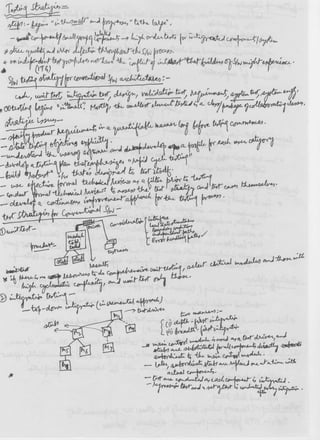 Testing Strategies
step:- begins "in the small" and progress, "to the large".
- component/small groups of components → high order tests for integrated component/system
* drive quality and error detection throughout the S/w process.
* an independent test group does not have the "conflict of interest" that builders of S/w might experience.
(ITG)
S/w testing strategy for conventional S/w architectures:-
code, unit test, integration test, design, validation test, requirements, system test, system engg.
OO testing begins "in the small". Mostly the smallest element tested is a class/package of collaborating classes.
Strategic issues—
- specify product requirements in a quantifiable manner long before testing commences.
- state testing objectives explicitly.
- understand the users of software and develop a profile for each user category
- develop a testing plan that emphasizes "rapid cycle testing"
- build "robust" S/w that is designed to test itself.
- use effective formal technical reviews as a filter prior to testing
- conduct formal technical reviews to assess the test strategy and test cases themselves.
- develop a continuous improvement approach for the testing process.
Test Strategies for Conventional S/w—
① unit test—
procedure
module
consideration
interfaces
local data structures
boundary conditions
independent paths
error handling paths
stub
stub
results
testcases
* if there is no resources to do comprehensive unit testing, select critical modules and those with
high cyclomatic complexity, and unit test only those.
② integration testing—
- top-down integration (in incremental approach)
→ test driver
stubs
M1
M2
M3
M4
M5
M6
M7
M8
two manners:-
(i) depth-first integration
(ii) breadth-first integration
* main control module is used as a test driver, and
stubs are substituted for all components directly
subordinate to the main control module.
- later, subordinate stubs are replaced one at a time with
actual components.
- tests are conducted as each component is integrated.
- regression test